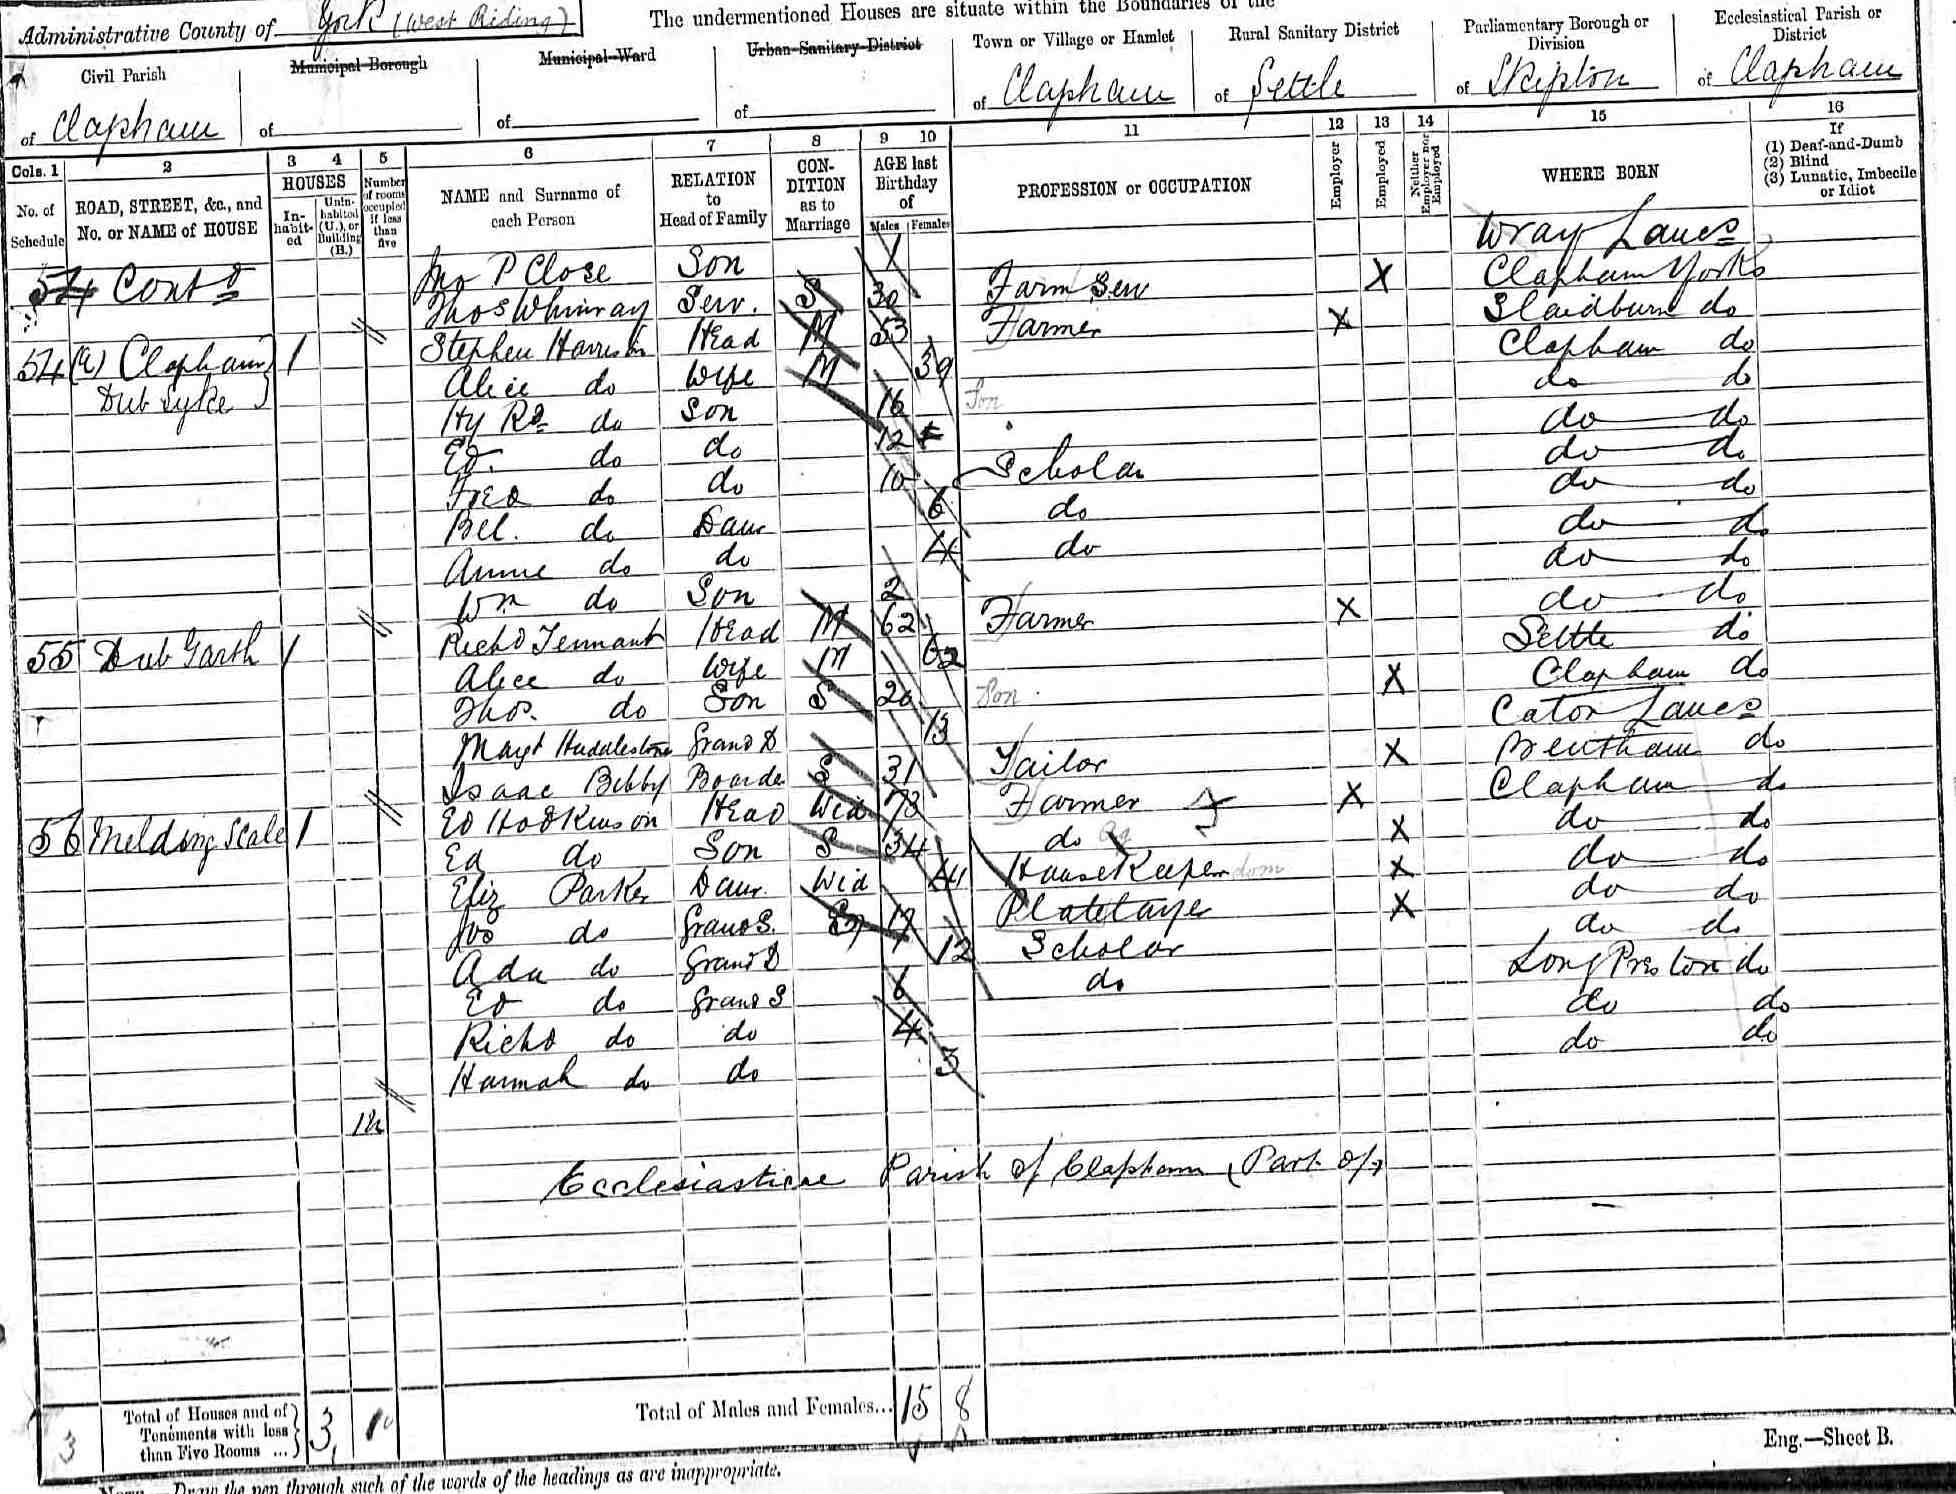 Administrative County of York (West Riding)
The undermentioned Houses are situate within the Boundaries of the
Civil Parish of Clapham
Municipal Borough of
Municipal Ward of
Urban Sanitary District of
Town or Village or Hamlet of Clapham
Rural Sanitary District of Settle
Parliamentary Borough or Division of Skipton
Ecclesiastical Parish or District of Clapham
Cols. 1 2 3 4 5 6 7 8 9 10 11 12 13 14 15 16
No. of Schedule
ROAD, STREET, &c., and No. or NAME of HOUSE
HOUSES
Inhabited
Uninhabited (U.), or Building (B.)
Number of rooms occupied if less than five
NAME and Surname of each Person
RELATION to Head of Family
CONDITION as to Marriage
AGE last Birthday of
Males Females
PROFESSION or OCCUPATION
Employer
Employed
Neither Employer nor Employed
WHERE BORN
If
(1) Deaf-and-Dumb
(2) Blind
(3) Lunatic, Imbecile or Idiot
54 Contd Jno P Close Son 1 Wray Lancs
Thos Whinray Serv. S 30 Farm Serv X Clapham Yorks
54 (a) Clapham Dub Syke 1 Stephen Harrison Head M 53 Farmer X Slaidburn do
Alice do Wife M 39 Clapham do
Hy Rd do Son 16 Son do do
Ed. do do 12 do do
Fred do do 10 Scholar do do
Bel. do Daur 6 do do do
Annie do do 4 do do do
Wm do Son 2 do do
55 Dub Garth 1 Richd Tennant Head M 62 Farmer X do do
Alice do Wife M 62 Settle do
Thos. do Son S 20 Son X Clapham do
Margt Huddlestone Grand D 13 Caton Lancs
Isaac Bibby Boarder S 31 Tailor X Bentham do
56 Melding Scale 1 Ed Hodkinson Head Wid 73 Farmer X Clapham do
Ed do Son S 34 do Ag X do do
Eliz Parker Daur. Wid 41 House Keeper dom X do do
Jos do Grand S. 17 Platelayer X do do
Ada do Grand D 12 Scholar do do
Ed do Grand S 6 do Long Preston do
Richd do do 4 do do
Hannah do do 3 do do
Ecclesiastical Parish of Clapham (Part of)
3 Total of Houses and of Tenements with less than Five Rooms ... 3
Total of Males and Females... 15 8
Eng.—Sheet B.
Note.—Draw the pen through such of the words of the headings as are inappropriate.